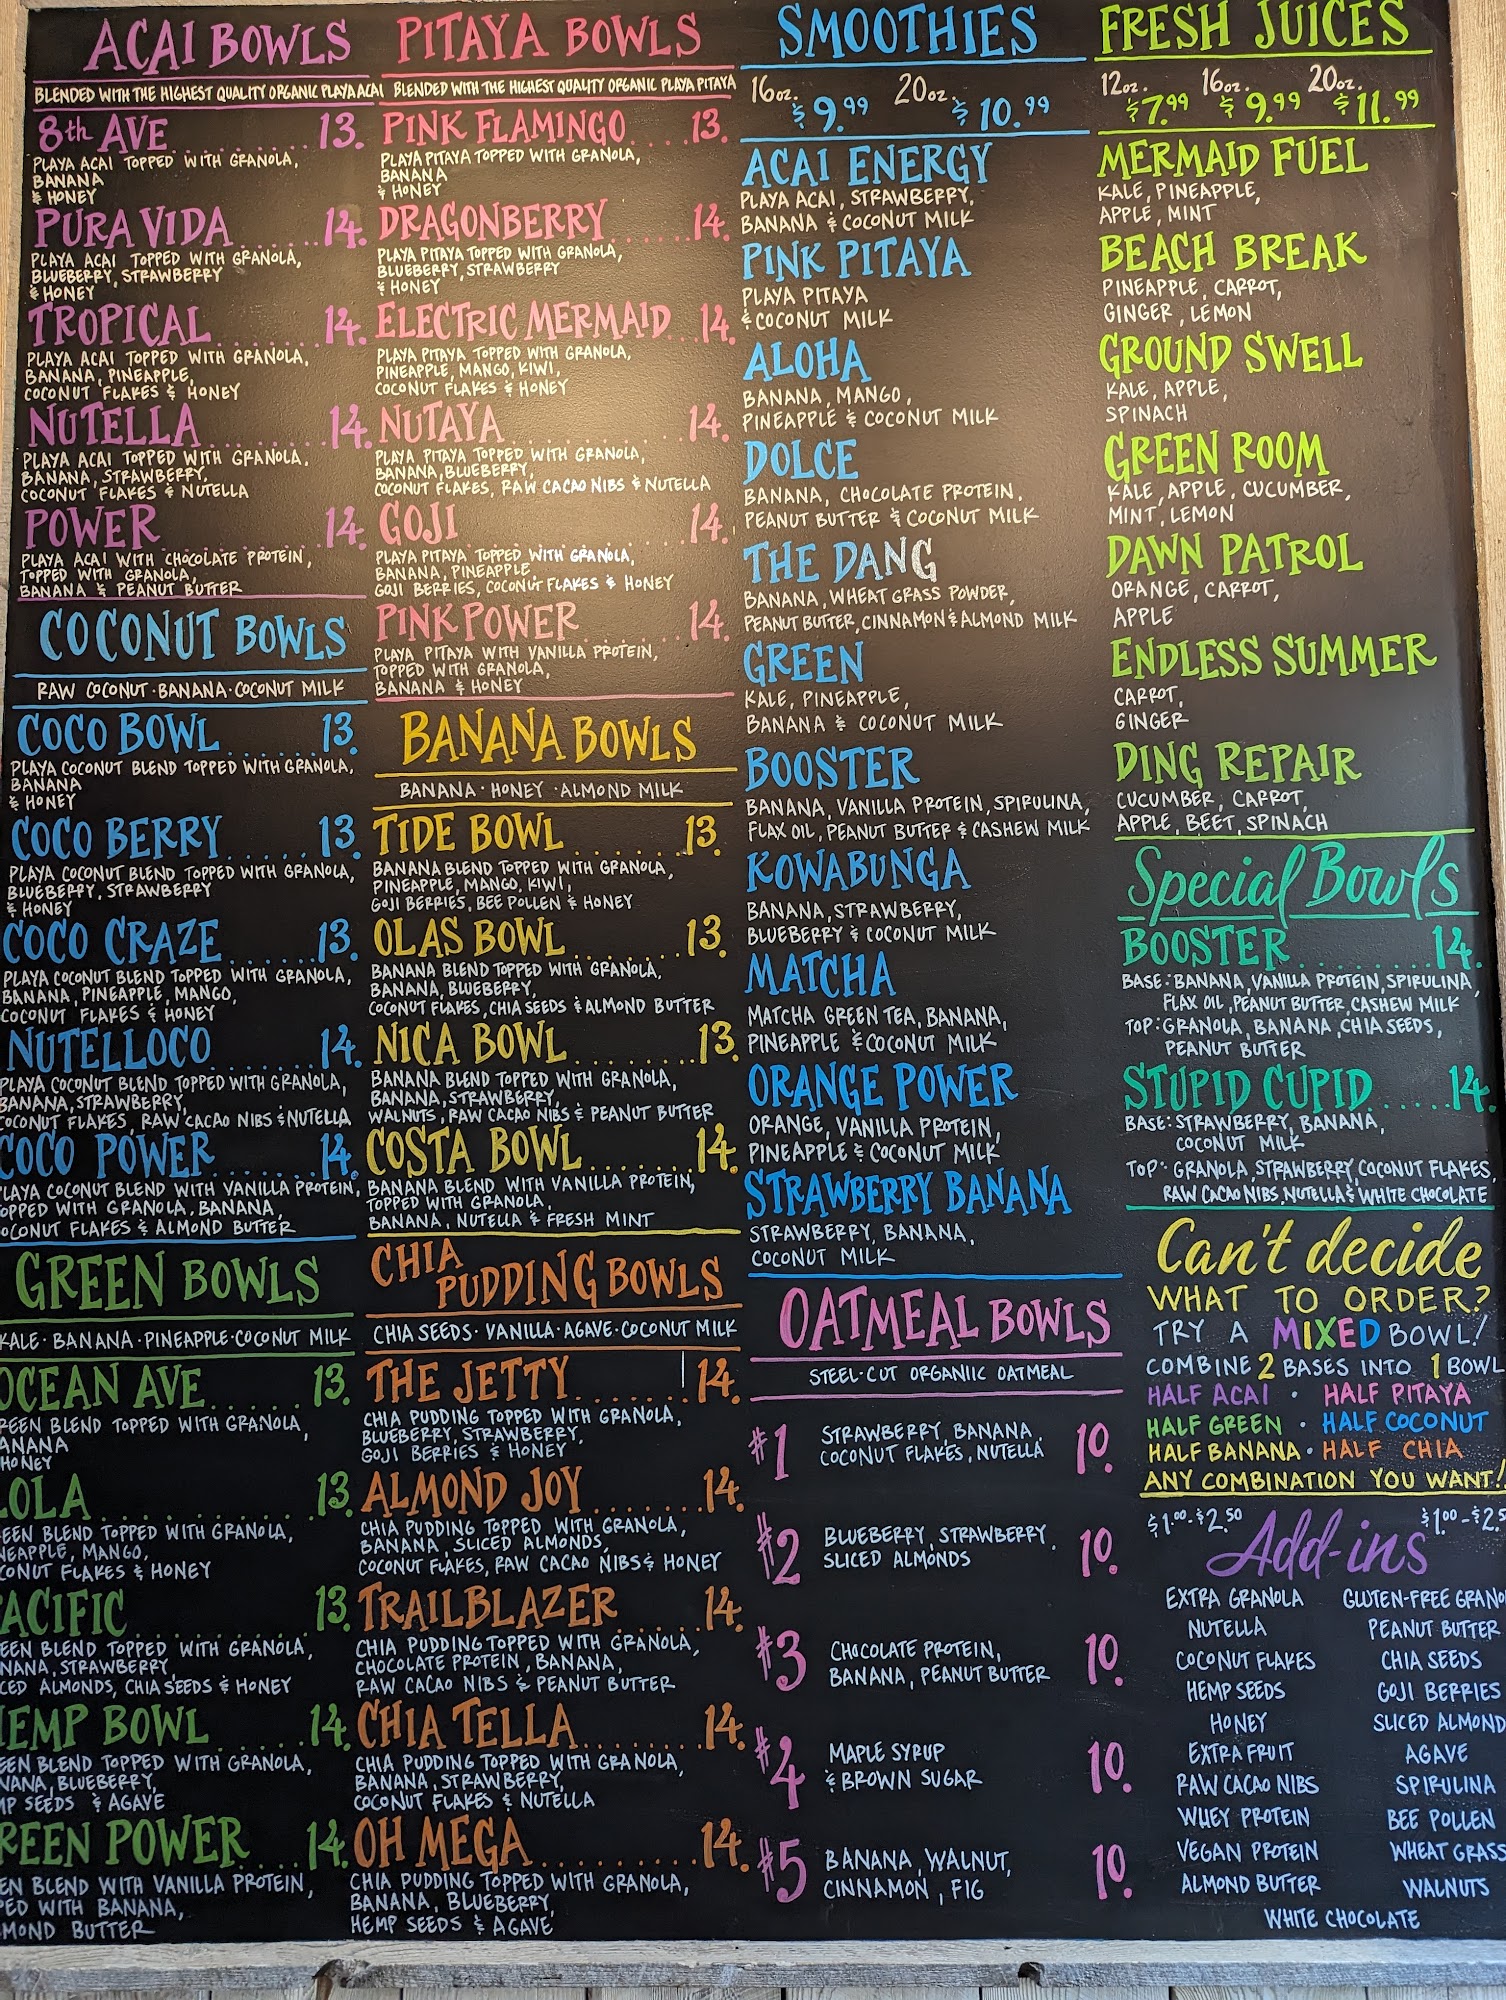 ACAI BOWLS
BLENDED WITH THE HIGHEST QUALITY ORGANIC PLAYA ACAI
8th AVE 13.
PLAYA ACAI TOPPED WITH GRANOLA,
BANANA
& HONEY
PURA VIDA 14.
PLAYA ACAI TOPPED WITH GRANOLA,
BLUEBERRY, STRAWBERRY
& HONEY
TROPICAL 14.
PLAYA ACAI TOPPED WITH GRANOLA,
BANANA, PINEAPPLE,
COCONUT FLAKES & HONEY
NUTELLA 14.
PLAYA ACAI TOPPED WITH GRANOLA,
BANANA, STRAWBERRY,
COCONUT FLAKES & NUTELLA
POWER 14.
PLAYA ACAI WITH CHOCOLATE PROTEIN,
TOPPED WITH GRANOLA,
BANANA & PEANUT BUTTER
COCONUT BOWLS
RAW COCONUT · BANANA · COCONUT MILK
COCO BOWL 13.
PLAYA COCONUT BLEND TOPPED WITH GRANOLA,
BANANA
& HONEY
COCO BERRY 13.
PLAYA COCONUT BLEND TOPPED WITH GRANOLA,
BLUEBERRY, STRAWBERRY
& HONEY
COCO CRAZE 13.
PLAYA COCONUT BLEND TOPPED WITH GRANOLA,
BANANA, PINEAPPLE, MANGO,
COCONUT FLAKES & HONEY
NUTELLOCO 14.
PLAYA COCONUT BLEND TOPPED WITH GRANOLA,
BANANA, STRAWBERRY,
COCONUT FLAKES, RAW CACAO NIBS & NUTELLA
COCO POWER 14.
PLAYA COCONUT BLEND WITH VANILLA PROTEIN,
TOPPED WITH GRANOLA, BANANA,
COCONUT FLAKES & ALMOND BUTTER
GREEN BOWLS
KALE · BANANA · PINEAPPLE · COCONUT MILK
OCEAN AVE 13.
REEN BLEND TOPPED WITH GRANOLA,
ANANA
HONEY
LOLA 13.
EEN BLEND TOPPED WITH GRANOLA,
NEAPPLE, MANGO,
CONUT FLAKES & HONEY
ACIFIC 13.
EEN BLEND TOPPED WITH GRANOLA,
NANA, STRAWBERRY,
CED ALMONDS, CHIA SEEDS & HONEY
HEMP BOWL 14.
EEN BLEND TOPPED WITH GRANOLA,
NANA, BLUEBERRY,
MP SEEDS & AGAVE
REEN POWER 14.
EN BLEND WITH VANILLA PROTEIN,
PED WITH BANANA,
MOND BUTTER
PITAYA BOWLS
BLENDED WITH THE HIGHEST QUALITY ORGANIC PLAYA PITAYA
PINK FLAMINGO 13.
PLAYA PITAYA TOPPED WITH GRANOLA,
BANANA
& HONEY
DRAGONBERRY 14.
PLAYA PITAYA TOPPED WITH GRANOLA,
BLUEBERRY, STRAWBERRY
& HONEY
ELECTRIC MERMAID 14.
PLAYA PITAYA TOPPED WITH GRANOLA,
PINEAPPLE, MANGO, KIWI,
COCONUT FLAKES & HONEY
NUTAYA 14.
PLAYA PITAYA TOPPED WITH GRANOLA,
BANANA, BLUEBERRY,
COCONUT FLAKES, RAW CACAO NIBS & NUTELLA
GOJI 14.
PLAYA PITAYA TOPPED WITH GRANOLA,
BANANA, PINEAPPLE
GOJI BERRIES, COCONUT FLAKES & HONEY
PINK POWER 14.
PLAYA PITAYA WITH VANILLA PROTEIN,
TOPPED WITH GRANOLA,
BANANA & HONEY
BANANA BOWLS
BANANA · HONEY · ALMOND MILK
TIDE BOWL 13.
BANANA BLEND TOPPED WITH GRANOLA,
PINEAPPLE, MANGO, KIWI,
GOJI BERRIES, BEE POLLEN & HONEY
OLAS BOWL 13.
BANANA BLEND TOPPED WITH GRANOLA,
BANANA, BLUEBERRY,
COCONUT FLAKES, CHIA SEEDS & ALMOND BUTTER
NICA BOWL 13.
BANANA BLEND TOPPED WITH GRANOLA,
BANANA, STRAWBERRY,
WALNUTS, RAW CACAO NIBS & PEANUT BUTTER
COSTA BOWL 14.
BANANA BLEND WITH VANILLA PROTEIN,
TOPPED WITH GRANOLA,
BANANA, NUTELLA & FRESH MINT
CHIA
PUDDING BOWLS
CHIA SEEDS · VANILLA · AGAVE · COCONUT MILK
THE JETTY 14.
CHIA PUDDING TOPPED WITH GRANOLA,
BLUEBERRY, STRAWBERRY,
GOJI BERRIES & HONEY
ALMOND JOY 14.
CHIA PUDDING TOPPED WITH GRANOLA,
BANANA, SLICED ALMONDS,
COCONUT FLAKES, RAW CACAO NIBS & HONEY
TRAILBLAZER 14.
CHIA PUDDING TOPPED WITH GRANOLA,
CHOCOLATE PROTEIN, BANANA,
RAW CACAO NIBS & PEANUT BUTTER
CHIA TELLA 14.
CHIA PUDDING TOPPED WITH GRANOLA,
BANANA, STRAWBERRY,
COCONUT FLAKES & NUTELLA
OH MEGA 14.
CHIA PUDDING TOPPED WITH GRANOLA,
BANANA, BLUEBERRY,
HEMP SEEDS & AGAVE
SMOOTHIES
16oz. $9.99 20oz. $10.99
ACAI ENERGY
PLAYA ACAI, STRAWBERRY,
BANANA & COCONUT MILK
PINK PITAYA
PLAYA PITAYA
& COCONUT MILK
ALOHA
BANANA, MANGO,
PINEAPPLE & COCONUT MILK
DOLCE
BANANA, CHOCOLATE PROTEIN,
PEANUT BUTTER & COCONUT MILK
THE DANG
BANANA, WHEAT GRASS POWDER,
PEANUT BUTTER, CINNAMON & ALMOND MILK
GREEN
KALE, PINEAPPLE,
BANANA & COCONUT MILK
BOOSTER
BANANA, VANILLA PROTEIN, SPIRULINA,
FLAX OIL, PEANUT BUTTER & CASHEW MILK
KOWABUNGA
BANANA, STRAWBERRY,
BLUEBERRY & COCONUT MILK
MATCHA
MATCHA GREEN TEA, BANANA,
PINEAPPLE & COCONUT MILK
ORANGE POWER
ORANGE, VANILLA PROTEIN,
PINEAPPLE & COCONUT MILK
STRAWBERRY BANANA
STRAWBERRY, BANANA,
COCONUT MILK
OATMEAL BOWLS
STEEL-CUT ORGANIIC OATMEAL
#1 STRAWBERRY, BANANA, 10.
COCONUT FLAKES, NUTELLA
#2 BLUEBERRY, STRAWBERRY, 10.
SLICED ALMONDS
#3 CHOCOLATE PROTEIN, 10.
BANANA, PEANUT BUTTER
#4 MAPLE SYRUP 10.
& BROWN SUGAR
#5 BANANA, WALNUT, 10.
CINNAMON, FIG
FRESH JUICES
12oz. $7.99 16oz. $9.99 20oz. $11.99
MERMAID FUEL
KALE, PINEAPPLE,
APPLE, MINT
BEACH BREAK
PINEAPPLE, CARROT,
GINGER, LEMON
GROUND SWELL
KALE, APPLE,
SPINACH
GREEN ROOM
KALE, APPLE, CUCUMBER,
MINT, LEMON
DAWN PATROL
ORANGE, CARROT,
APPLE
ENDLESS SUMMER
CARROT,
GINGER
DING REPAIR
CUCUMBER, CARROT,
APPLE, BEET, SPINACH
Special Bowls
BOOSTER 14.
BASE: BANANA, VANILLA PROTEIN, SPIRULINA,
FLAX OIL, PEANUT BUTTER, CASHEW MILK
TOP: GRANOLA, BANANA, CHIA SEEDS,
PEANUT BUTTER
STUPID CUPID 14.
BASE: STRAWBERRY, BANANA,
COCONUT MILK
TOP: GRANOLA, STRAWBERRY, COCONUT FLAKES,
RAW CACAO NIBS, NUTELLA & WHITE CHOCOLATE
Can't decide
WHAT TO ORDER?
TRY A MIXED BOWL!
COMBINE 2 BASES INTO 1 BOWL
HALF ACAI · HALF PITAYA
HALF GREEN · HALF COCONUT
HALF BANANA · HALF CHIA
ANY COMBINATION YOU WANT!
$1.00-$2.50 $1.00-$2.5
Add-ins
EXTRA GRANOLA GLUTEN-FREE GRANO
NUTELLA PEANUT BUTTER
COCONUT FLAKES CHIA SEEDS
HEMP SEEDS GOJI BERRIES
HONEY SLICED ALMOND
EXTRA FRUIT AGAVE
RAW CACAO NIBS SPIRULINA
WHEY PROTEIN BEE POLLEN
VEGAN PROTEIN WHEAT GRASS
ALMOND BUTTER WALNUTS
WHITE CHOCOLATE